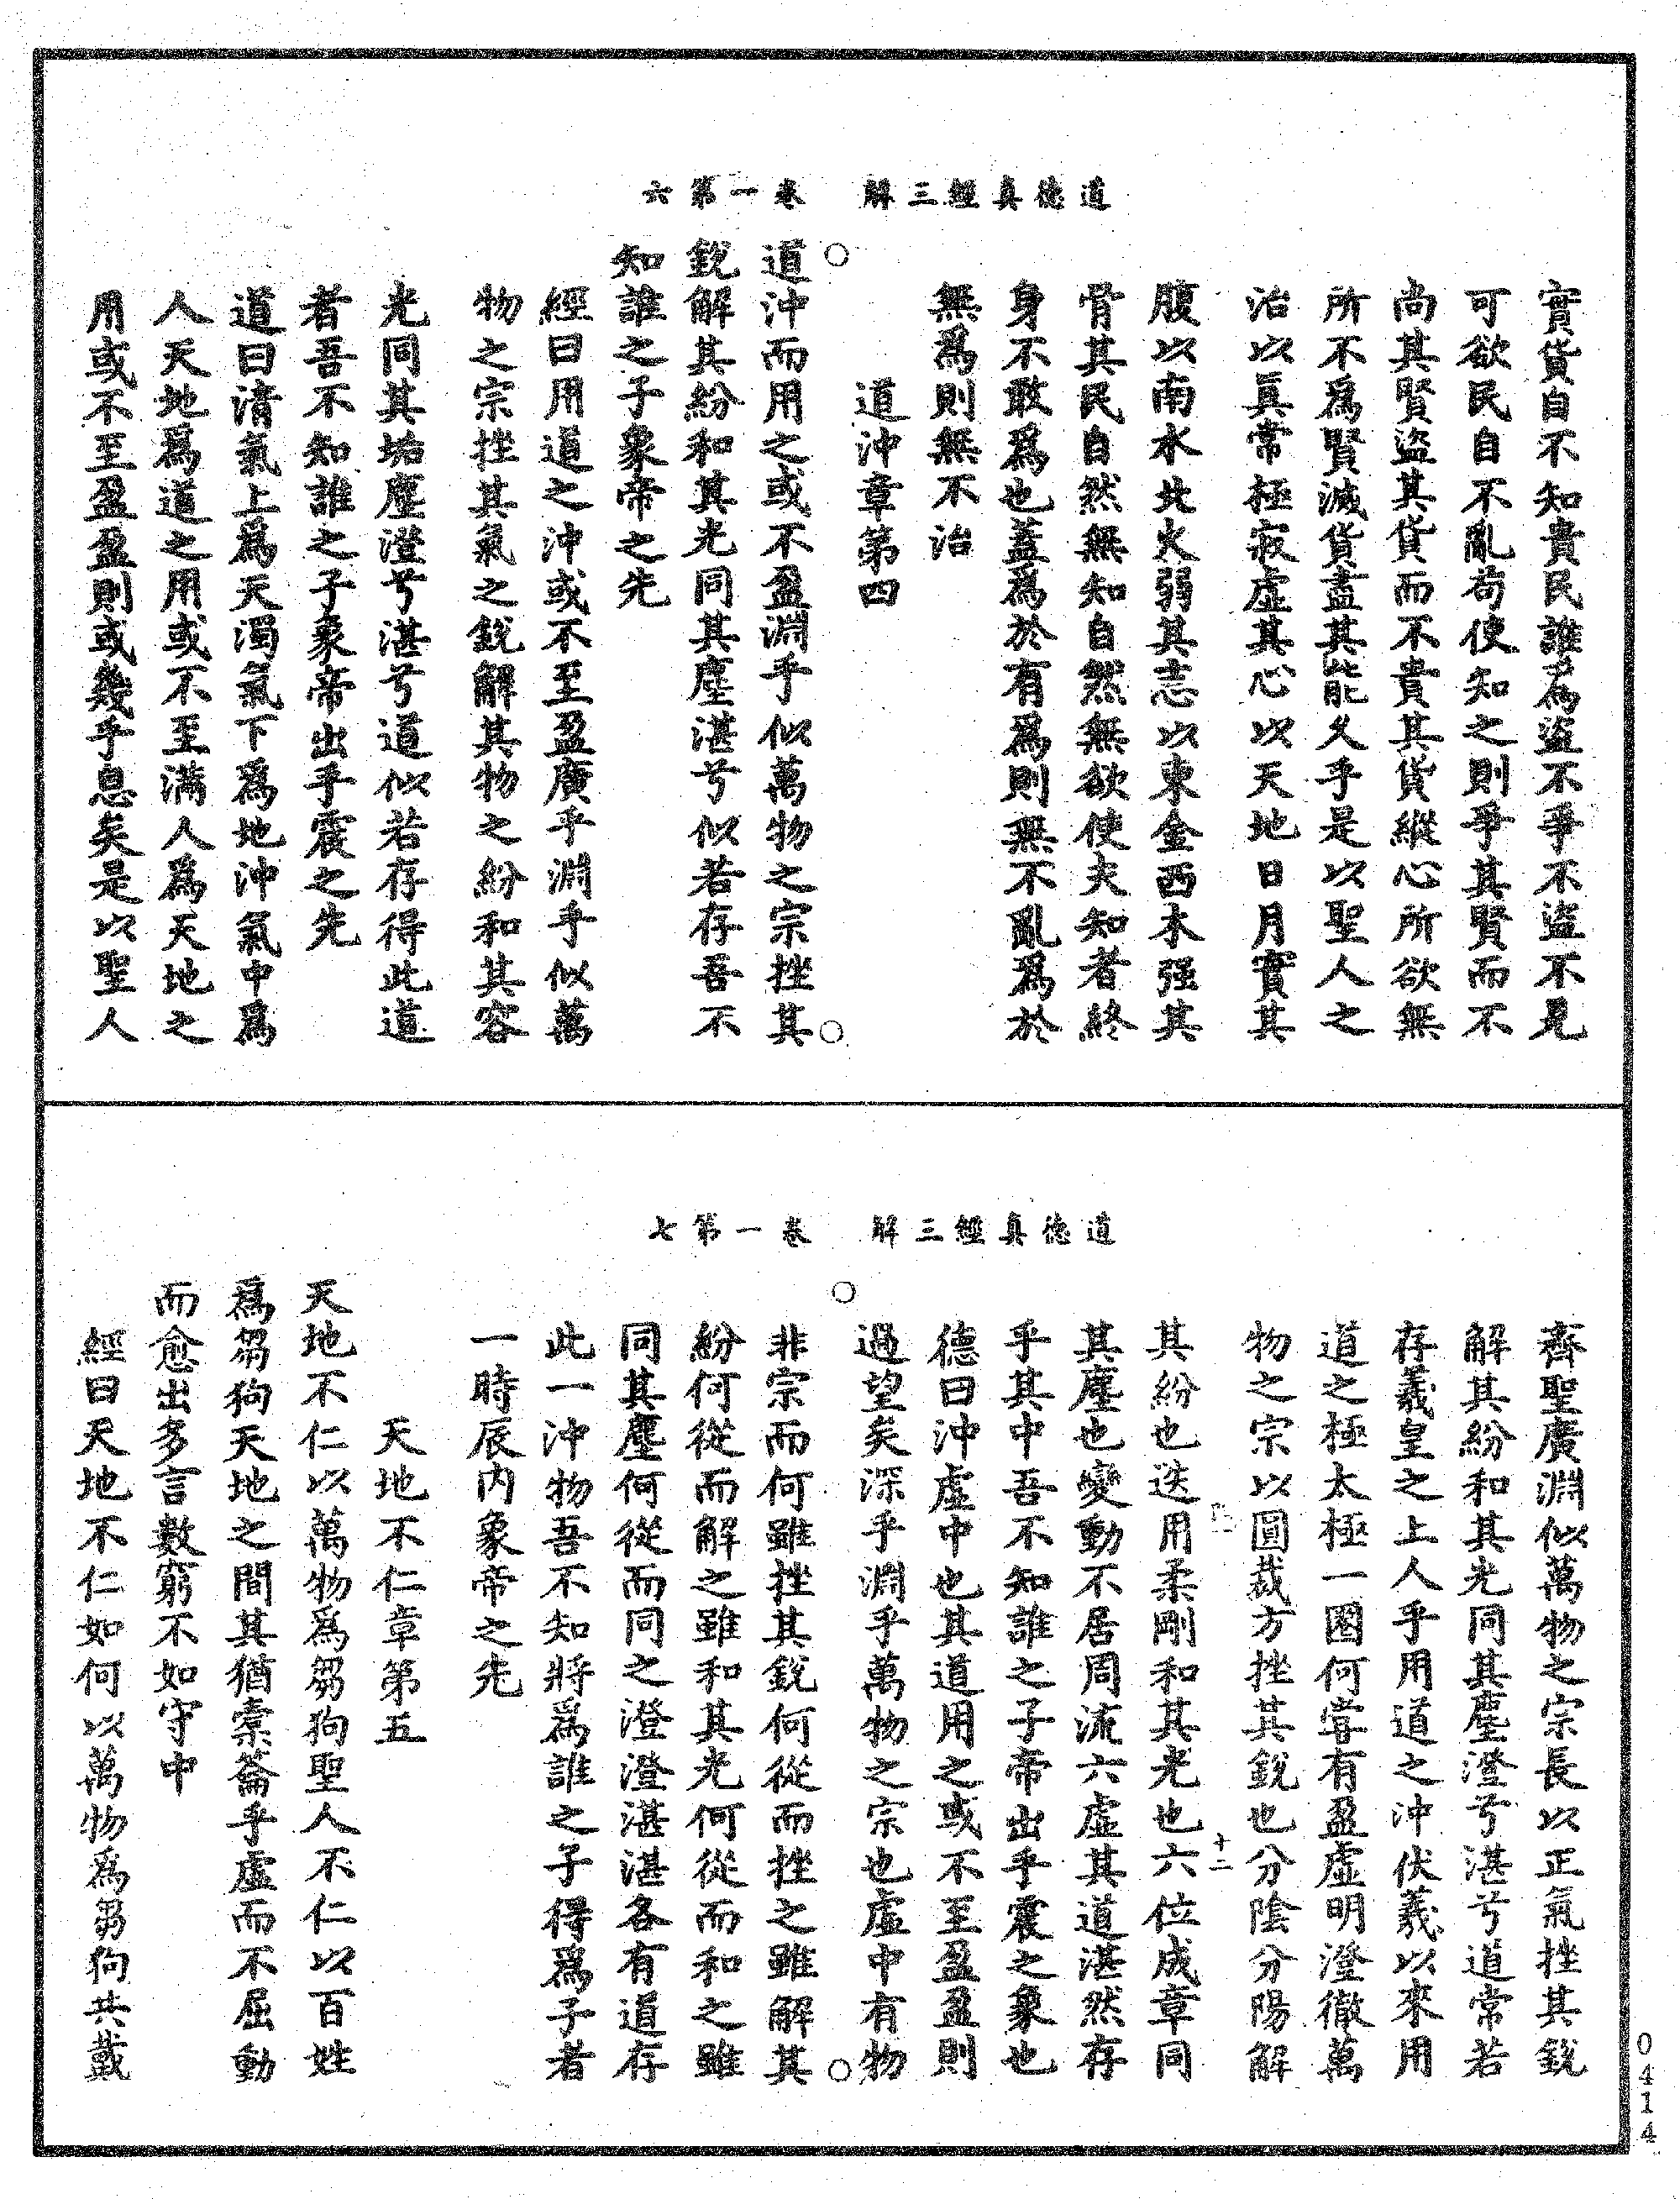 道德真經三解　卷一第六
實貨自不知貴民誰爲盜不爭不盜不見
可欲民自不亂苟使知之則爭其賢而不
尚其賢盜其貨而不貴其貨縱心所欲無
所不爲賢滅貨盡其能久乎是以聖人之
治以眞常極寂虛其心以天地日月實其
腹以南水北火弱其志以東金西木强其
骨其民自然無知自然無欲使夫知者終
身不敢爲也蓋爲於有爲則無不亂爲於
無爲則無不治
道沖章第四
道沖而用之或不盈淵乎似萬物之宗挫其
銳解其紛和其光同其塵湛兮似若存吾不
知誰之子象帝之先
經曰用道之沖或不至盈廣乎淵乎似萬
物之宗挫其氣之銳解其物之紛和其容
光同其垢塵澄兮湛兮道似若存得此道
者吾不知誰之子象帝出乎震之先
道曰清氣上爲天濁氣下爲地沖氣中爲
人天地爲道之用或不至滿人爲天地之
用或不至盈盈則或幾乎息矣是以聖人
道德真經三解　卷一第七
齊聖廣淵似萬物之宗長以正氣挫其銳
解其紛和其光同其塵澄兮湛兮道常若
存羲皇之上人乎用道之沖伏羲以來用
道之極太極一圈何嘗有盈虛明澄徹萬
物之宗以圓裁方挫其銳也分陰分陽解
十二
其紛也迭用柔剛和其光也六位成章同
其塵也變動不居周流六虛其道湛然存
乎其中吾不知誰之子帝出乎震之象也
德曰沖虛中也其道用之或不至盈盈則
過望矣深乎淵乎萬物之宗也虛中有物
非宗而何雖挫其銳何從而挫之雖解其
紛何從而解之雖和其光何從而和之雖
同其塵何從而同之澄澄湛湛各有道存
此一沖物吾不知將爲誰之子得爲子者
一時辰内象帝之先
天地不仁章第五
天地不仁以萬物爲芻狗聖人不仁以百姓
爲芻狗天地之間其猶橐籥乎虛而不屈動
而愈出多言數窮不如守中
經曰天地不仁如何以萬物爲芻狗共戴
0414